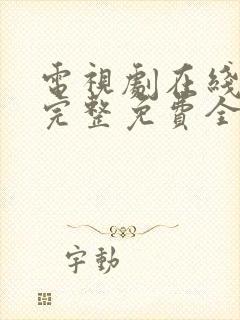 電視劇在綫
完整免費全
字動